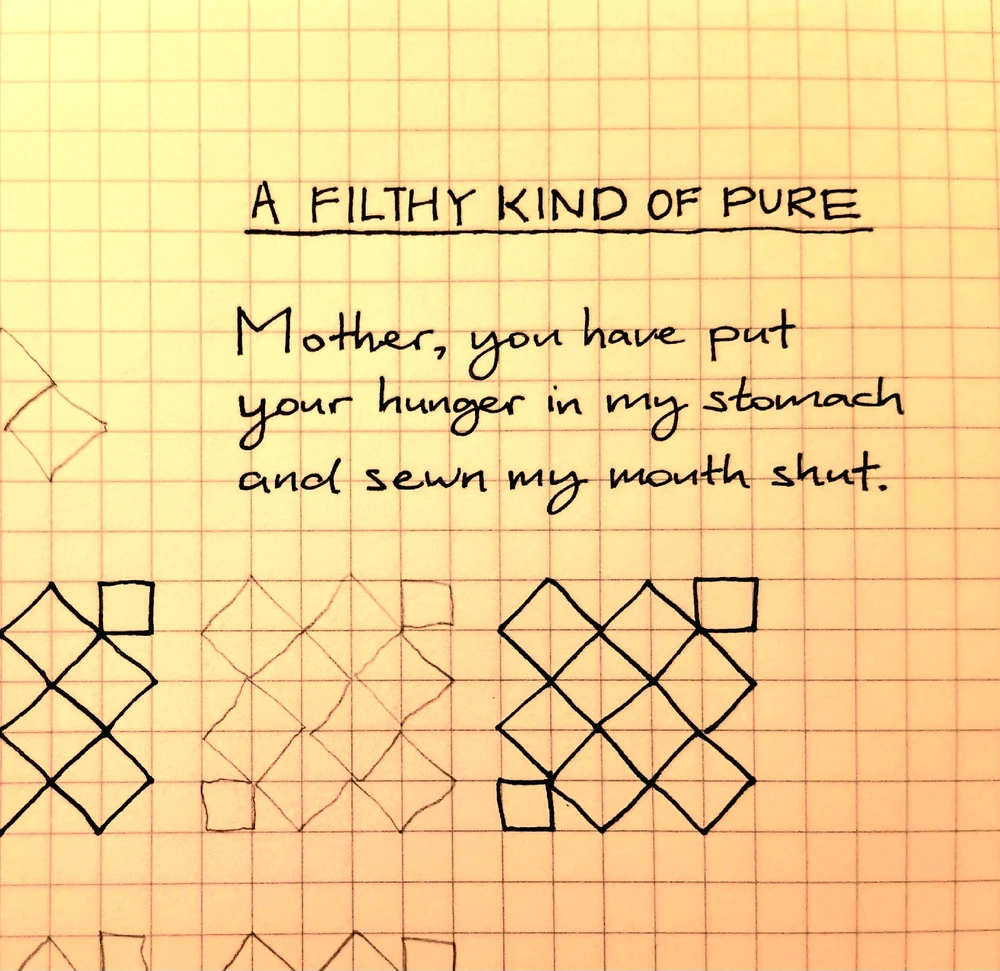 A FILTHY KIND OF PURE
Mother, you have put
your hunger in my stomach
and sewn my mouth shut.